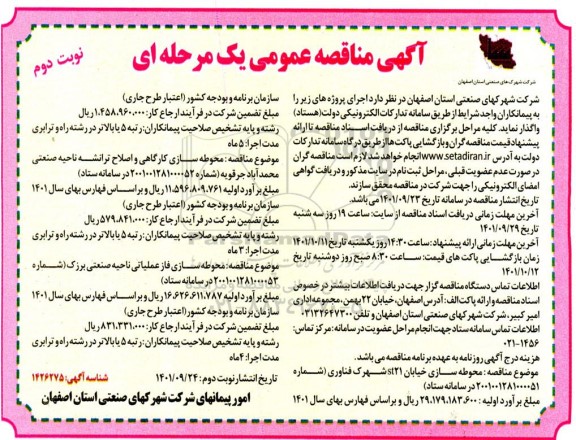 آگهی مناقصه عمومی یک مرحله ای
نوبت دوم
شرکت شهرک های صنعتی استان اصفهان
شرکت شهرکهای صنعتی استان اصفهان در نظر دارد اجرای پروژه های زیر را
به پیمانکاران واجد شرایط از طریق سامانه تدارکات الکترونیکی دولت (ستاد)
واگذار نماید. کلیه مراحل برگزاری مناقصه از دریافت اسناد مناقصه تا ارائه
پیشنهاد قیمت مناقصه گران و بازگشایی پاکت ها از طریق درگاه سامانه تدارکات
دولت به آدرس www.setadiran.ir انجام خواهد شد. لازم است مناقصه گران
در صورت عدم عضویت قبلی، مراحل ثبت نام در سایت مذکور و دریافت گواهی
امضای الکترونیکی را جهت شرکت در مناقصه محقق سازند.
تاریخ انتشار مناقصه در سامانه تاریخ ۱۴۰۱/۰۹/۲۳ می باشد.
آخرین مهلت زمانی دریافت اسناد مناقصه از سایت: ساعت ۱۹ روز سه شنبه
تاریخ ۱۴۰۱/۰۹/۲۹
آخرین مهلت زمانی ارائه پیشنهاد: ساعت ۱۴:۳۰ روز یکشنبه تاریخ ۱۴۰۱/۱۰/۱۱
زمان بازگشایی پاکت های قیمت: ساعت ۸:۳۰ صبح روز دوشنبه تاریخ
۱۴۰۱/۱۰/۱۲
اطلاعات تماس دستگاه مناقصه گزار جهت دریافت اطلاعات بیشتر در خصوص
اسناد مناقصه و ارائه پاکت الف: آدرس اصفهان، خیابان ۲۲ بهمن، مجموعه اداری
امیرکبیر، شرکت شهرکهای صنعتی استان اصفهان و تلفن ۰۳۱۳۲۶۴۷۳۰۰
اطلاعات تماس سامانه ستاد جهت انجام مراحل عضویت در سامانه: مرکز تماس:
۰۲۱-۱۴۵۶
هزینه درج آگهی روزنامه به عهده برنامه مناقصه می باشد.
موضوع مناقصه: محوطه سازی خیابان st21 شهرک فناوری (شماره
۲۰۰۱۰۰۱۲۸۱۰۰۰۰۵۱ در سامانه ستاد)
مبلغ برآورد اولیه: ۲۹،۱۷۹،۱۸۳،۶۰۰ ریال و بر اساس فهارس بهای سال ۱۴۰۱
سازمان برنامه و بودجه کشور (اعتبار طرح جاری)
مبلغ تضمین شرکت در فرآیند ارجاع کار: ۱،۴۵۸،۹۶۰،۰۰۰ ریال
رشته و پایه تشخیص صلاحیت پیمانکاران: رتبه ۵ یا بالاتر در رشته راه و ترابری
مدت اجرا: ۵ ماه
موضوع مناقصه: محوطه سازی کارگاهی و اصلاح ترانشه ناحیه صنعتی
محمدآباد جرقویه (شماره ۲۰۰۱۰۰۱۲۸۱۰۰۰۰۵۲ در سامانه ستاد)
مبلغ برآورد اولیه ۱۱،۵۹۶،۸۰۹،۷۶۱ ریال و بر اساس فهارس بهای سال ۱۴۰۱
سازمان برنامه و بودجه کشور (اعتبار طرح جاری)
مبلغ تضمین شرکت در فرآیند ارجاع کار: ۵۷۹،۸۴۱،۰۰۰ ریال
رشته و پایه تشخیص صلاحیت پیمانکاران: رتبه ۵ یا بالاتر در رشته راه و ترابری
مدت اجرا: ۳ ماه
موضوع مناقصه: محوطه سازی فاز عملیاتی ناحیه صنعتی برزک (شماره
۲۰۰۱۰۰۱۲۸۱۰۰۰۰۵۳ در سامانه ستاد)
مبلغ برآورد اولیه ۱۶،۶۲۶،۶۱۱،۷۸۷ ریال و بر اساس فهارس بهای سال ۱۴۰۱
سازمان برنامه و بودجه کشور (اعتبار طرح جاری)
مبلغ تضمین شرکت در فرآیند ارجاع کار: ۸۳۱،۳۳۱،۰۰۰ ریال
رشته و پایه تشخیص صلاحیت پیمانکاران: رتبه ۵ یا بالاتر در رشته راه و ترابری
مدت اجرا: ۴ ماه
تاریخ انتشار نوبت دوم: ۱۴۰۱/۰۹/۲۴
شناسه آگهی: ۱۴۲۶۲۷۵
امور پیمانهای شرکت شهرکهای صنعتی استان اصفهان